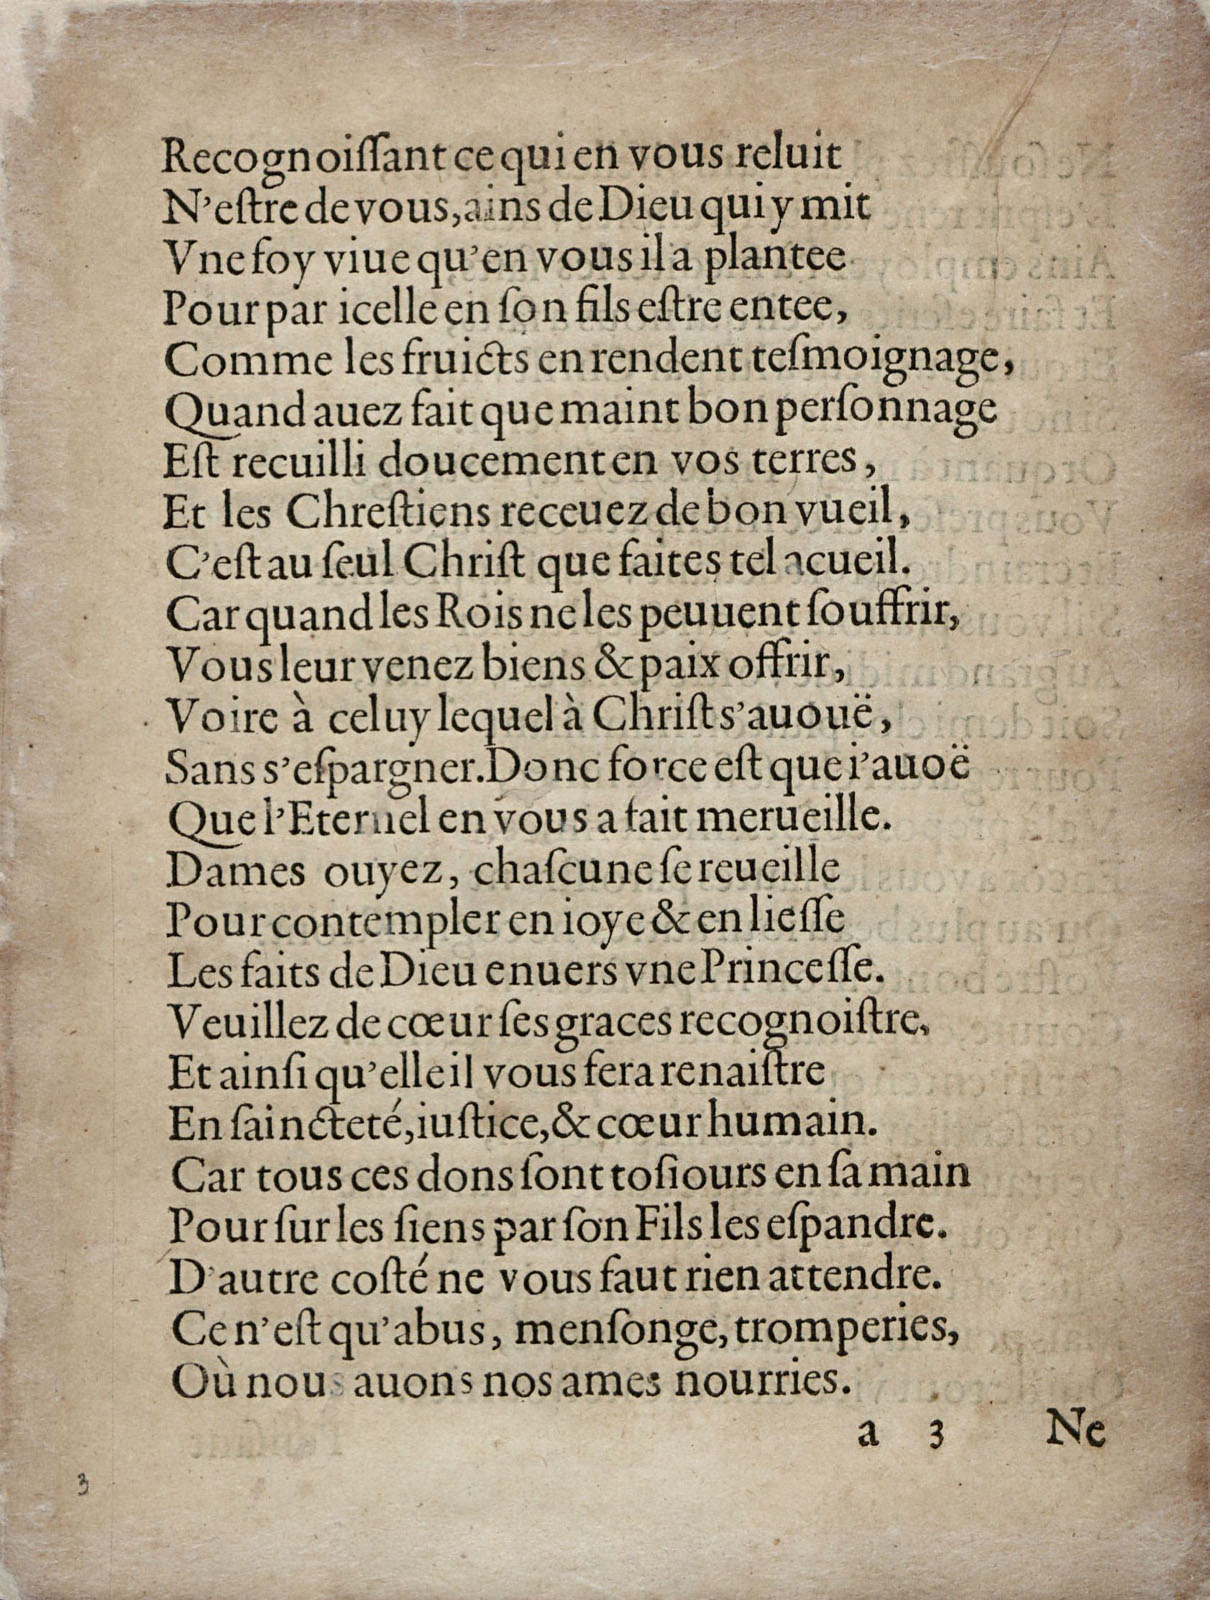 Recognoiſſant ce qui en vous reluit
N'eſtre de vous, ains de Dieu qui y mit
Vne foy viue qu'en vous il a plantee
Pour par icelle en ſon fils eſtre entee,
Comme les fruicts en rendent teſmoignage,
Quand auez fait que maint bon perſonnage
Eſt recuilli doucement en vos terres,
Et les Chreſtiens receuez de bon vueil,
C'eſt au ſeul Chriſt que faites tel acueil.
Car quand les Rois ne les peuuent ſouffrir,
Vous leur venez biens & paix offrir,
Voire à celuy lequel à Chriſt s'auouë,
Sans s'eſpargner. Donc force eſt que i'auoë
Que l'Eternel en vous a fait merueille.
Dames ouyez, chaſcune ſe reueille
Pour contempler en ioye & en lieſſe
Les faits de Dieu enuers vne Princeſſe.
Veuillez de cœur ſes graces recognoiſtre,
Et ainſi qu'elle il vous fera renaiſtre
En ſaincteté, iuſtice, & cœur humain.
Car tous ces dons ſont toſiours en ſa main
Pour ſur les ſiens par ſon Fils les eſpandre.
D'autre coſté ne vous faut rien attendre.
Ce n'eſt qu'abus, menſonge, tromperies,
Où nous auons nos ames nourries.
a 3 Ne
3